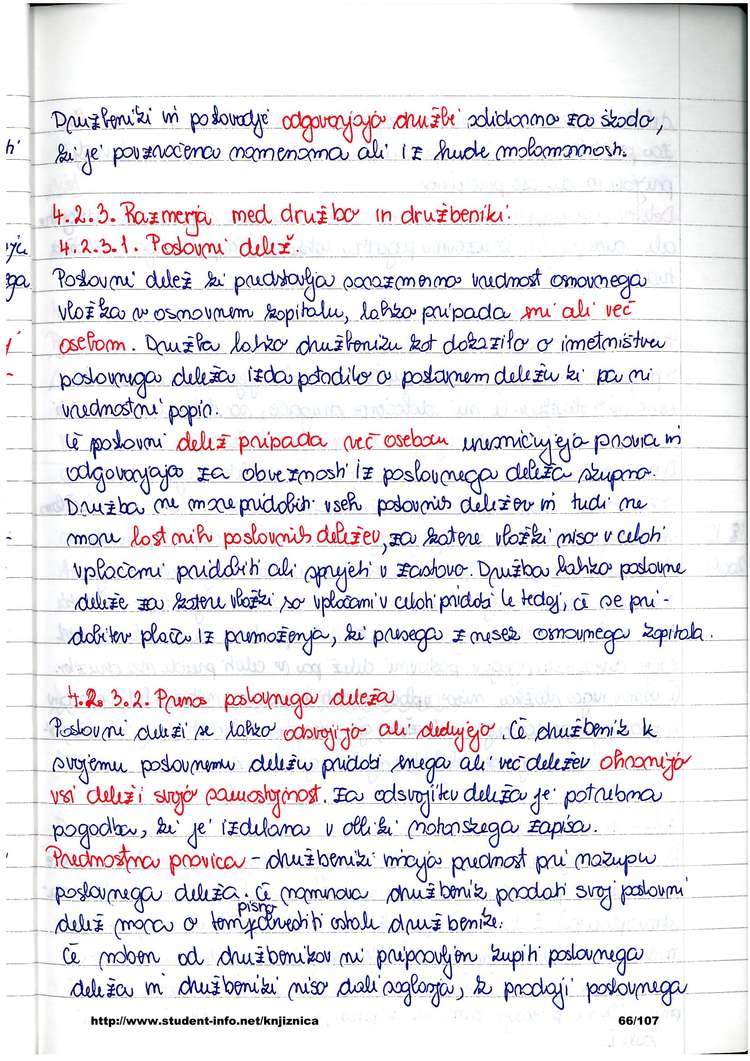 Družbeniki in poslovodje odgovarjajo družbi solidarno za škodo,
ki je povzročena namenoma ali iz hude malomarnosti.
4.2.3. Razmerja med družbo in družbeniki:
4.2.3.1. Poslovni delež.
Poslovni delež ki predstavlja sorazmerno vrednost osnovnega
vložka v osnovnem kapitalu, lahko pripada eni ali več
osebam. Družba lahko družbeniku kot dokazilo o imetništvu
poslovnega deleža izda potrdilo o poslovnem deležu ki pa ni
vrednostni papir.
Če poslovni delež pripada več osebam uresničujejo pravia in
odgovarjajo za obveznosti iz poslovnega deleža skupno.
Družba ne more pridobiti vseh poslovnih deležev in tudi ne
more lastnih poslovnih deležev, za katere vložki niso v celoti
vplačani pridobiti ali sprejeti v zastavo. Družba lahko poslovne
deleže za katere vložki so vplačani v celoti pridobi le tedaj, če se pri-
dobitev plača iz premoženja, ki presega znesek osnovnega kapitala.
4.2.3.2. Prenos poslovnega deleža
Poslovni deleži se lahko odsvojijo ali dedujejo. Če družbenik k
svojemu poslovnemu deležu pridobi enega ali več deležev ohranijo
vsi deleži svojo samostojnost. Za odsvojitev deleža je potrebna
pogodba, ki je izdelana v obliki notarskega zapisa.
Prednostna pravica - družbeniki imajo prednost pri nakupu
poslovnega deleža. Če namerava družbenik prodati svoj poslovni
delež mora o tem pisno obvestiti ostale družbenike.
Če noben od družbenikov ni pripravljen kupiti poslovnega
deleža in družbeniki niso dali soglasja, k prodaji poslovnega
http://www.student-info.net/knjiznica 66/107